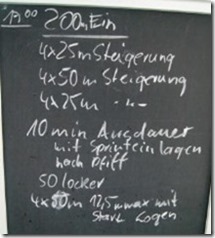 17⁰⁰ 200m Ein
4x25m Steigerung
4x50m Steigerung
4x25m -"-
10 min Ausdauer
mit Sprinteinlagen
nach Pfiff
50 locker
4x50m 12,5m max mit
Start Lagen